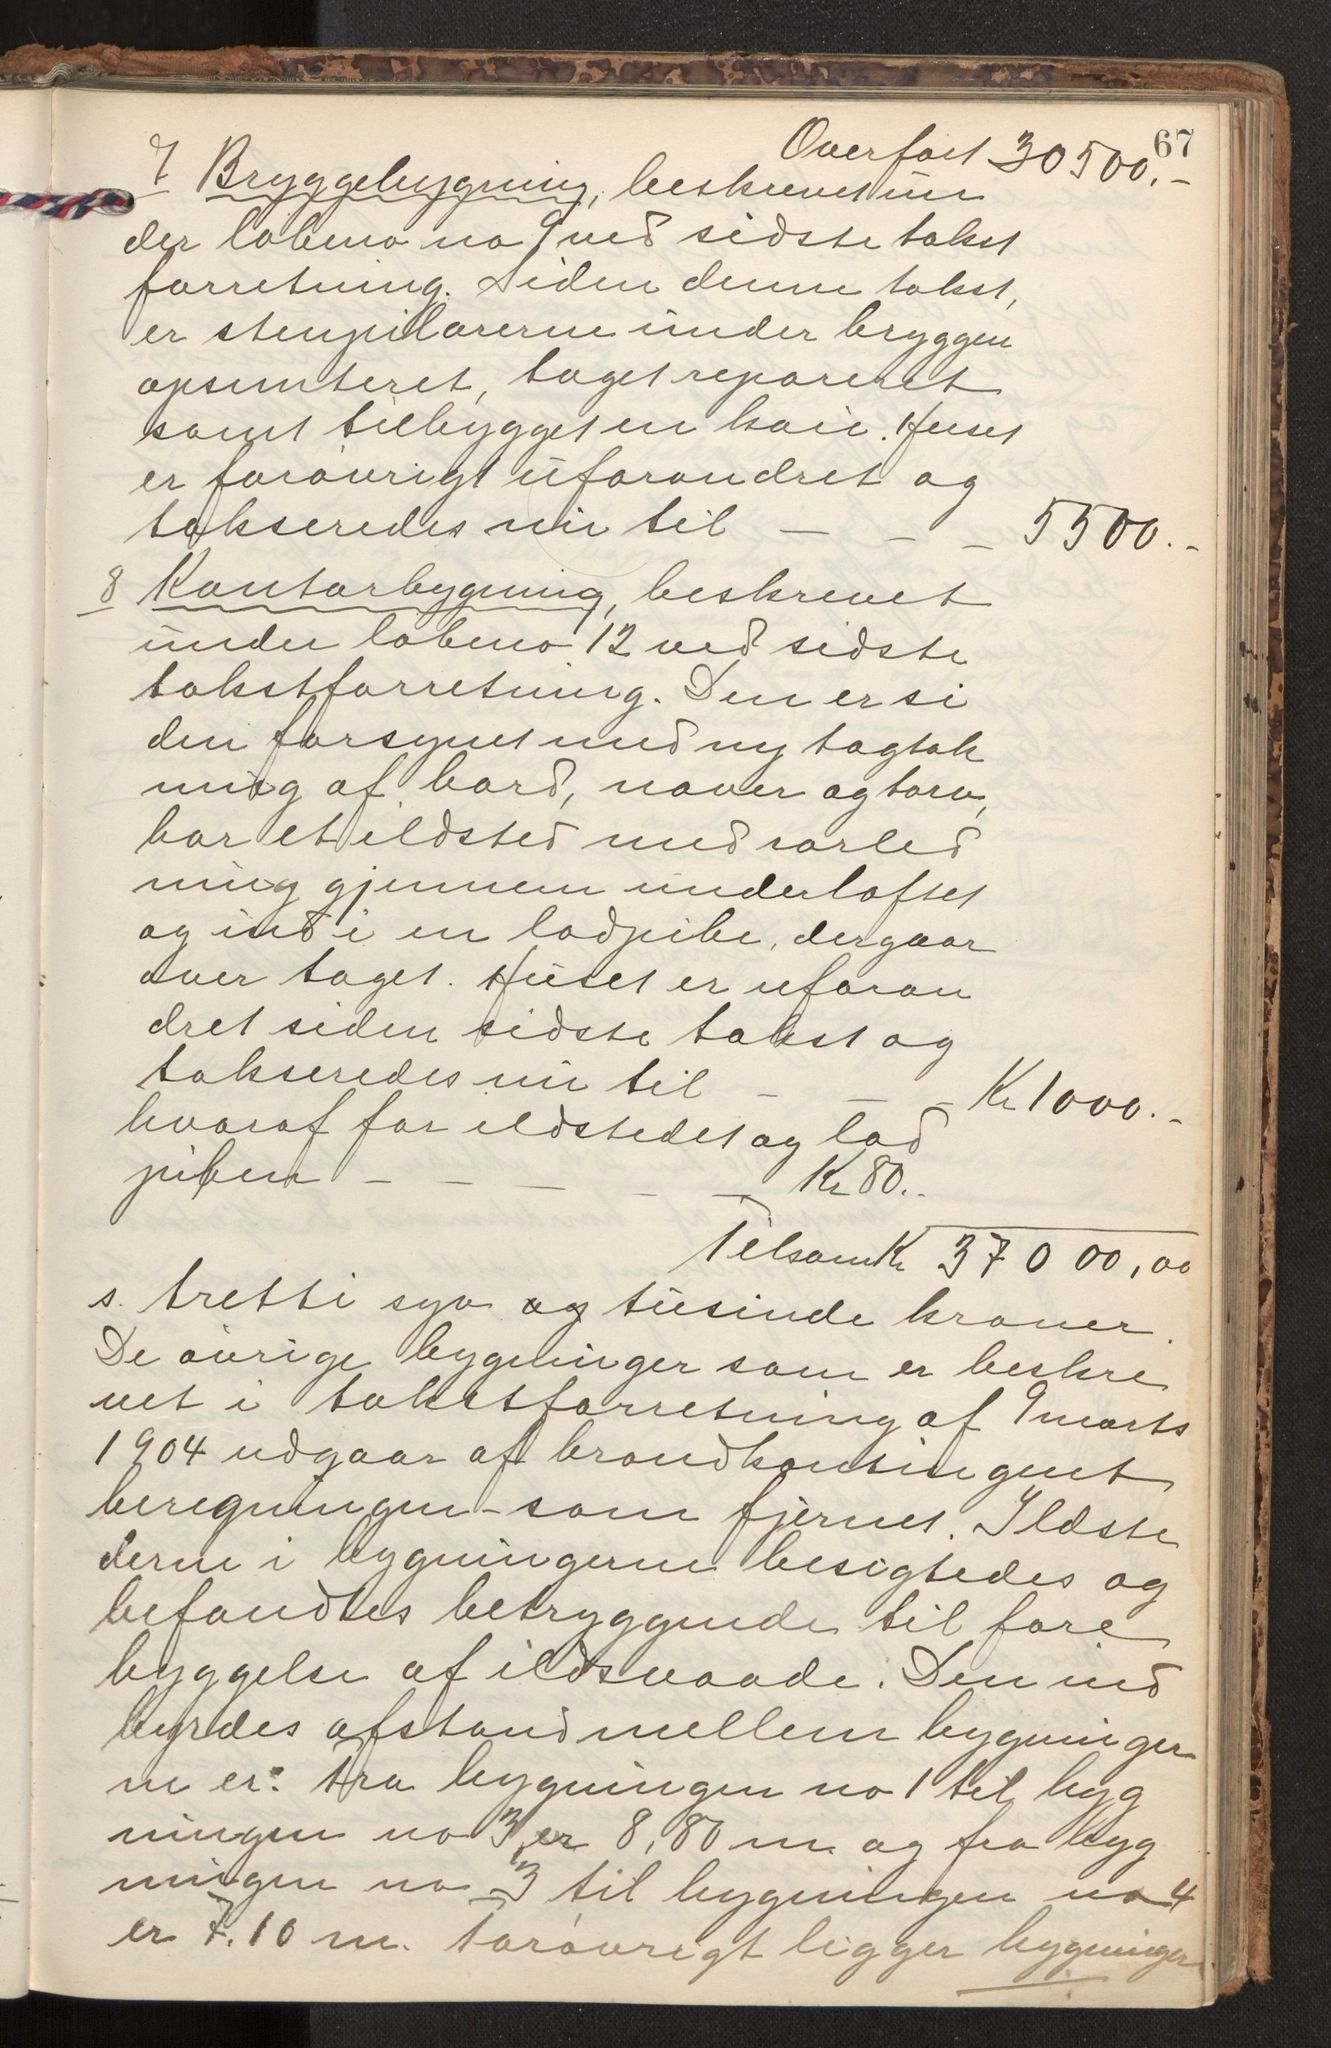 67
Overført 30500.-
7 Bryggebygning, beskrevet un
der løbeno no 9 ved sidste takst
forretning. Siden denne takst,
er stenpilarerne under bryggen
opsmuteret, taget reparert
samt tilbygget en kaie. Huset
er forøvrigt uforandret og
takseredes nu til — - - 5500.-
8 Kontorbygning, beskrevet
under løbeno 12 ved sidste
takstforretning. Den er si
den forsynet med ny tagtæk
ning af bord, næver og torv,
har et ildsted med rørled
ning gjennem underloftet
og ind i en lodpibe, der gaar
over taget. Huset er uforan
dret siden sidste takst og
takseredes nu til - - - Kr 1000.-
hvoraf for ildstedet og lod
piben - - - - - Kr 80.-
Tilsam Kr 37000,00
s. tretti syv og tusinde kroner.
De øvrige bygninger som er beskre
vet i takstforretning af 9 marts
1904 udgaar af brandkontingent
beregningen - som fjernet. Ildste
derne i bygningerne besigtedes og
befandtes betryggende til fore
byggelse af ildsvaade. Den ind
byrdes afstand mellem bygninger
ne er: fra bygningen no 1 til byg
ningen no 3 er 8,80 m og fra byg
ningen no 3 til bygningen no 4
er 7.10 m. Forøvrigt ligger bygninger